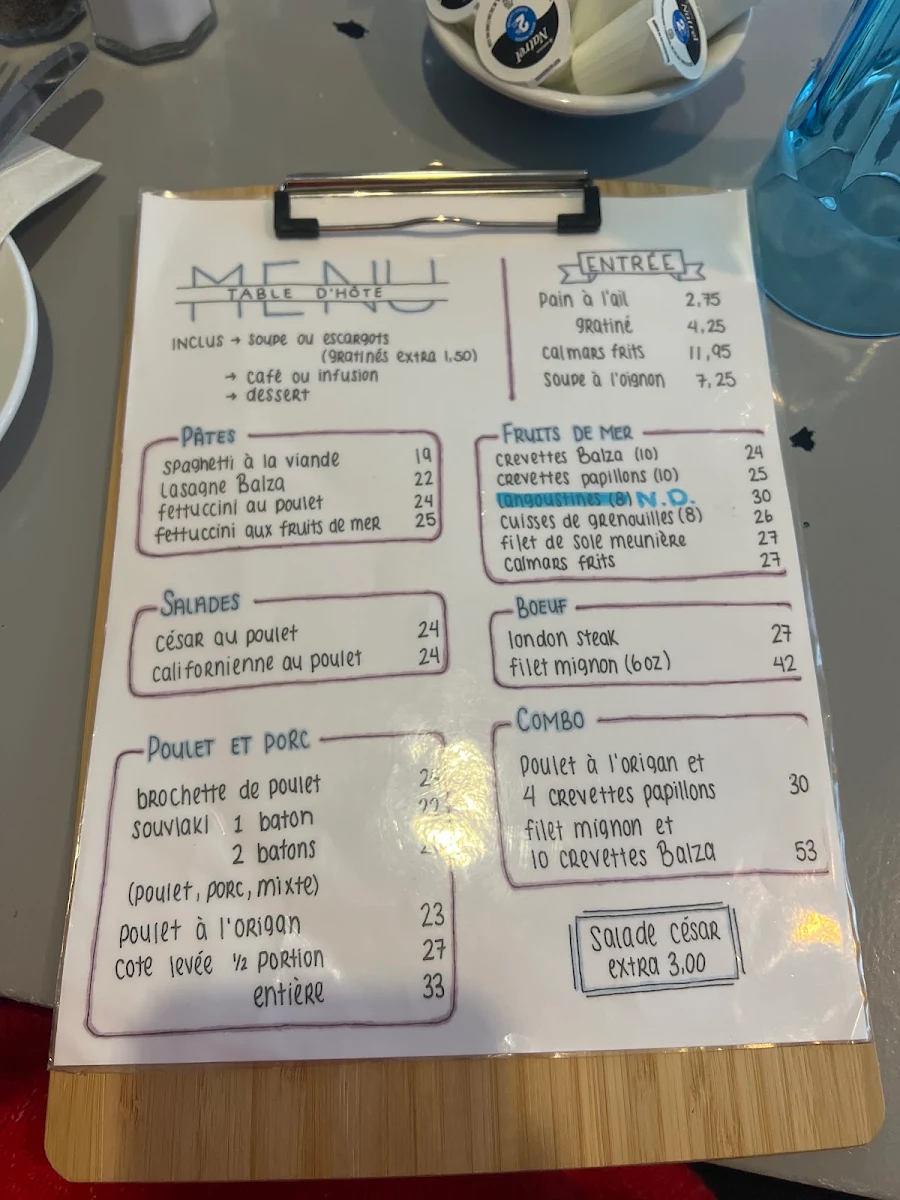 Natrel
2
MENU
TABLE D'HÔTE
INCLUS → SOUPE OU ESCARGOTS
(GRATINÉS EXTRA 1,50)
→ CAFÉ OU INFUSION
→ DESSERT
ENTRÉE
Pain à l'ail 2,75
gratiné 4,25
calmars frits 11,95
Soupe à l'oignon 7,25
PÂTES
spaghetti à la viande 19
Lasagne Balza 22
fettuccini au poulet 24
fettuccini aux fruits de mer 25
FRUITS DE MER
crevettes Balza (10) 24
crevettes papillons (10) 25
langoustines (8) N.D. 30
cuisses de grenouilles (8) 26
filet de sole meunière 27
calmars frits 27
SALADES
césar au poulet 24
californienne au poulet 24
BOEUF
london steak 27
filet mignon (6oz) 42
POULET ET PORC
brochette de poulet
souvlaki 1 baton
2 batons
(poulet, porc, mixte)
poulet à l'origan 23
cote levée 1/2 portion 27
entière 33
COMBO
Poulet à l'origan et
4 crevettes papillons 30
filet mignon et
10 crevettes Balza 53
Salade césar
extra 3.00